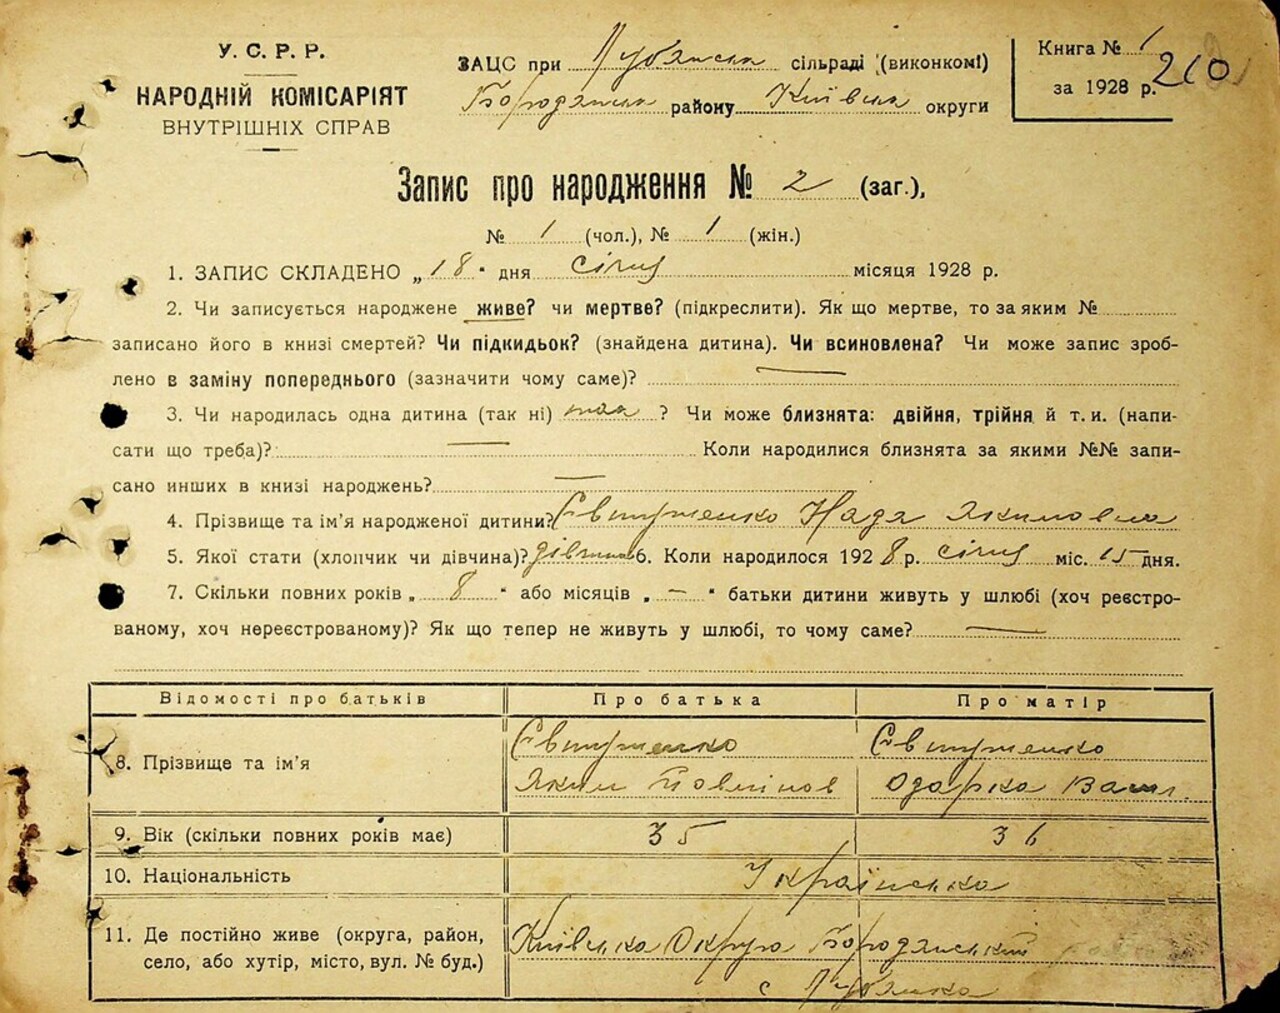 У. С. Р. Р.
НАРОДНІЙ КОМІСАРІЯТ
ВНУТРІШНІХ СПРАВ
ЗАЦС при Луб'янськ сільраді (виконкомі)
Бородянськ району Київськ округи
Книга № 1
за 1928 р. 210
Запис про народження № 2 (заг.),
№ 1 (чол.), № 1 (жін.)
1. ЗАПИС СКЛАДЕНО „18“ дня січня місяця 1928 р.
2. Чи записується народжене живе? чи мертве? (підкреслити). Як що мертве, то за яким №
записано його в книзі смертей? Чи підкидьок? (знайдена дитина). Чи всиновлена? Чи може запис зроб-
лено в заміну попереднього (зазначити чому саме)? —
3. Чи народилась одна дитина (так ні) так ? Чи може близнята: двійня, трійня й т. и. (напи-
сати що треба)? — Коли народилися близнята за якими №№ запи-
сано инших в книзі народжень? —
4. Прізвище та ім'я народженої дитини? Євтушенко Надя Якимовна
5. Якої стати (хлопчик чи дівчина)? дівчина 6. Коли народилося 1928 р. січня міс. 15 дня.
7. Скільки повних років „ 8 “ або місяців „ — “ батьки дитини живуть у шлюбі (хоч реєстро-
ваному, хоч нереєстрованому)? Як що тепер не живуть у шлюбі, то чому саме? —
Відомості про батьків Про батька Про матір
8. Прізвище та ім'я Євтушенко Яким Євтушенко Одарка Васил.
9. Вік (скільки повних років має) 35 36
10. Національність Українська
11. Де постійно живе (округа, район,
село, або хутір, місто, вул. № буд.)
Київська Округа Бородянський
с Луб'янка